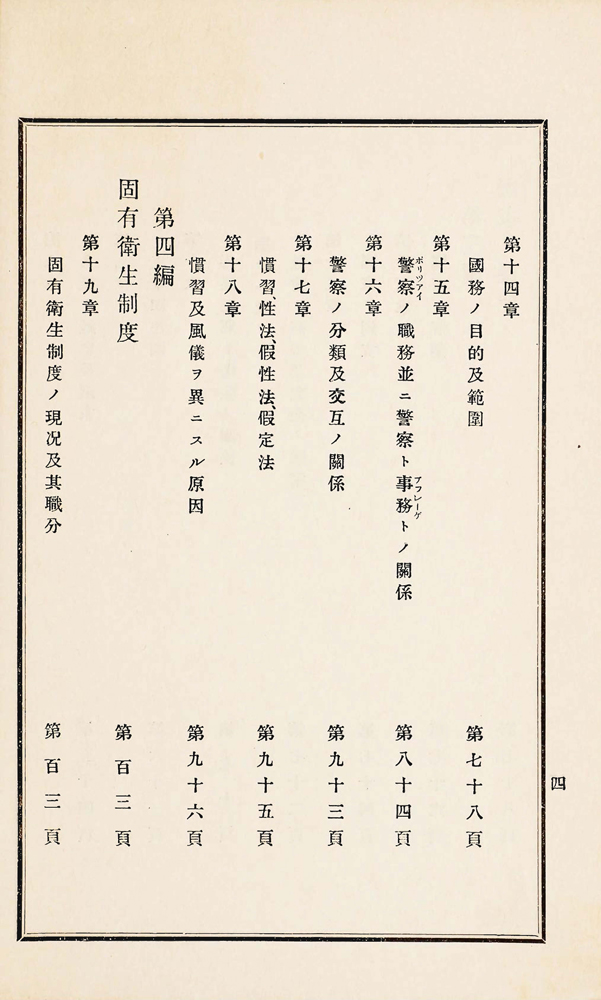 第十四章
國務ノ目的及範圍 第七十八頁
第十五章
警察ノ職務並ニ警察ト事務トノ關係 第八十四頁
ポリツアイ
アフレーゲ
第十六章
警察ノ分類及交互ノ關係 第九十三頁
第十七章
慣習、性法、假性法、假定法 第九十五頁
第十八章
慣習及風儀ヲ異ニスル原因 第九十六頁
第四編
固有衛生制度 第百三頁
第十九章
固有衛生制度ノ現况及其職分 第百三頁
四